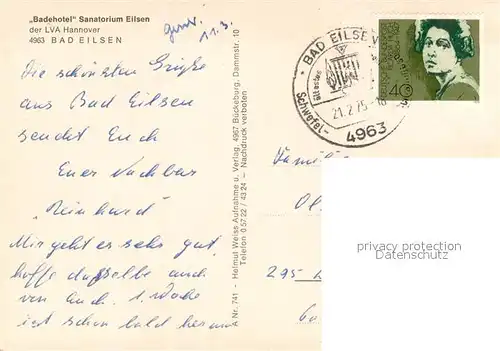 „Badehotel" Sanatorium Eilsen
der LVA Hannover
4963 BAD EILSEN
11.3.
Die schönsten Grüße
aus Bad Eilsen
sendet Euch
Euer Nachbar
„Reinhard"
Mir geht es sehr gut,
hoffe dasselbe auch
von Euch. 1. Woche
ist schon bald herum
A Nr. 741 - Helmut Weiss Aufnahme u. Verlag, 4967 Bückeburg, Dammstr. 10
Telefon 0 57 22 / 43 24 - Nachdruck verboten
BAD EILSEN
ältestes
Schwefel-
21.2.75-18
4963
40
Famili
295
privacy protection
Datenschutz